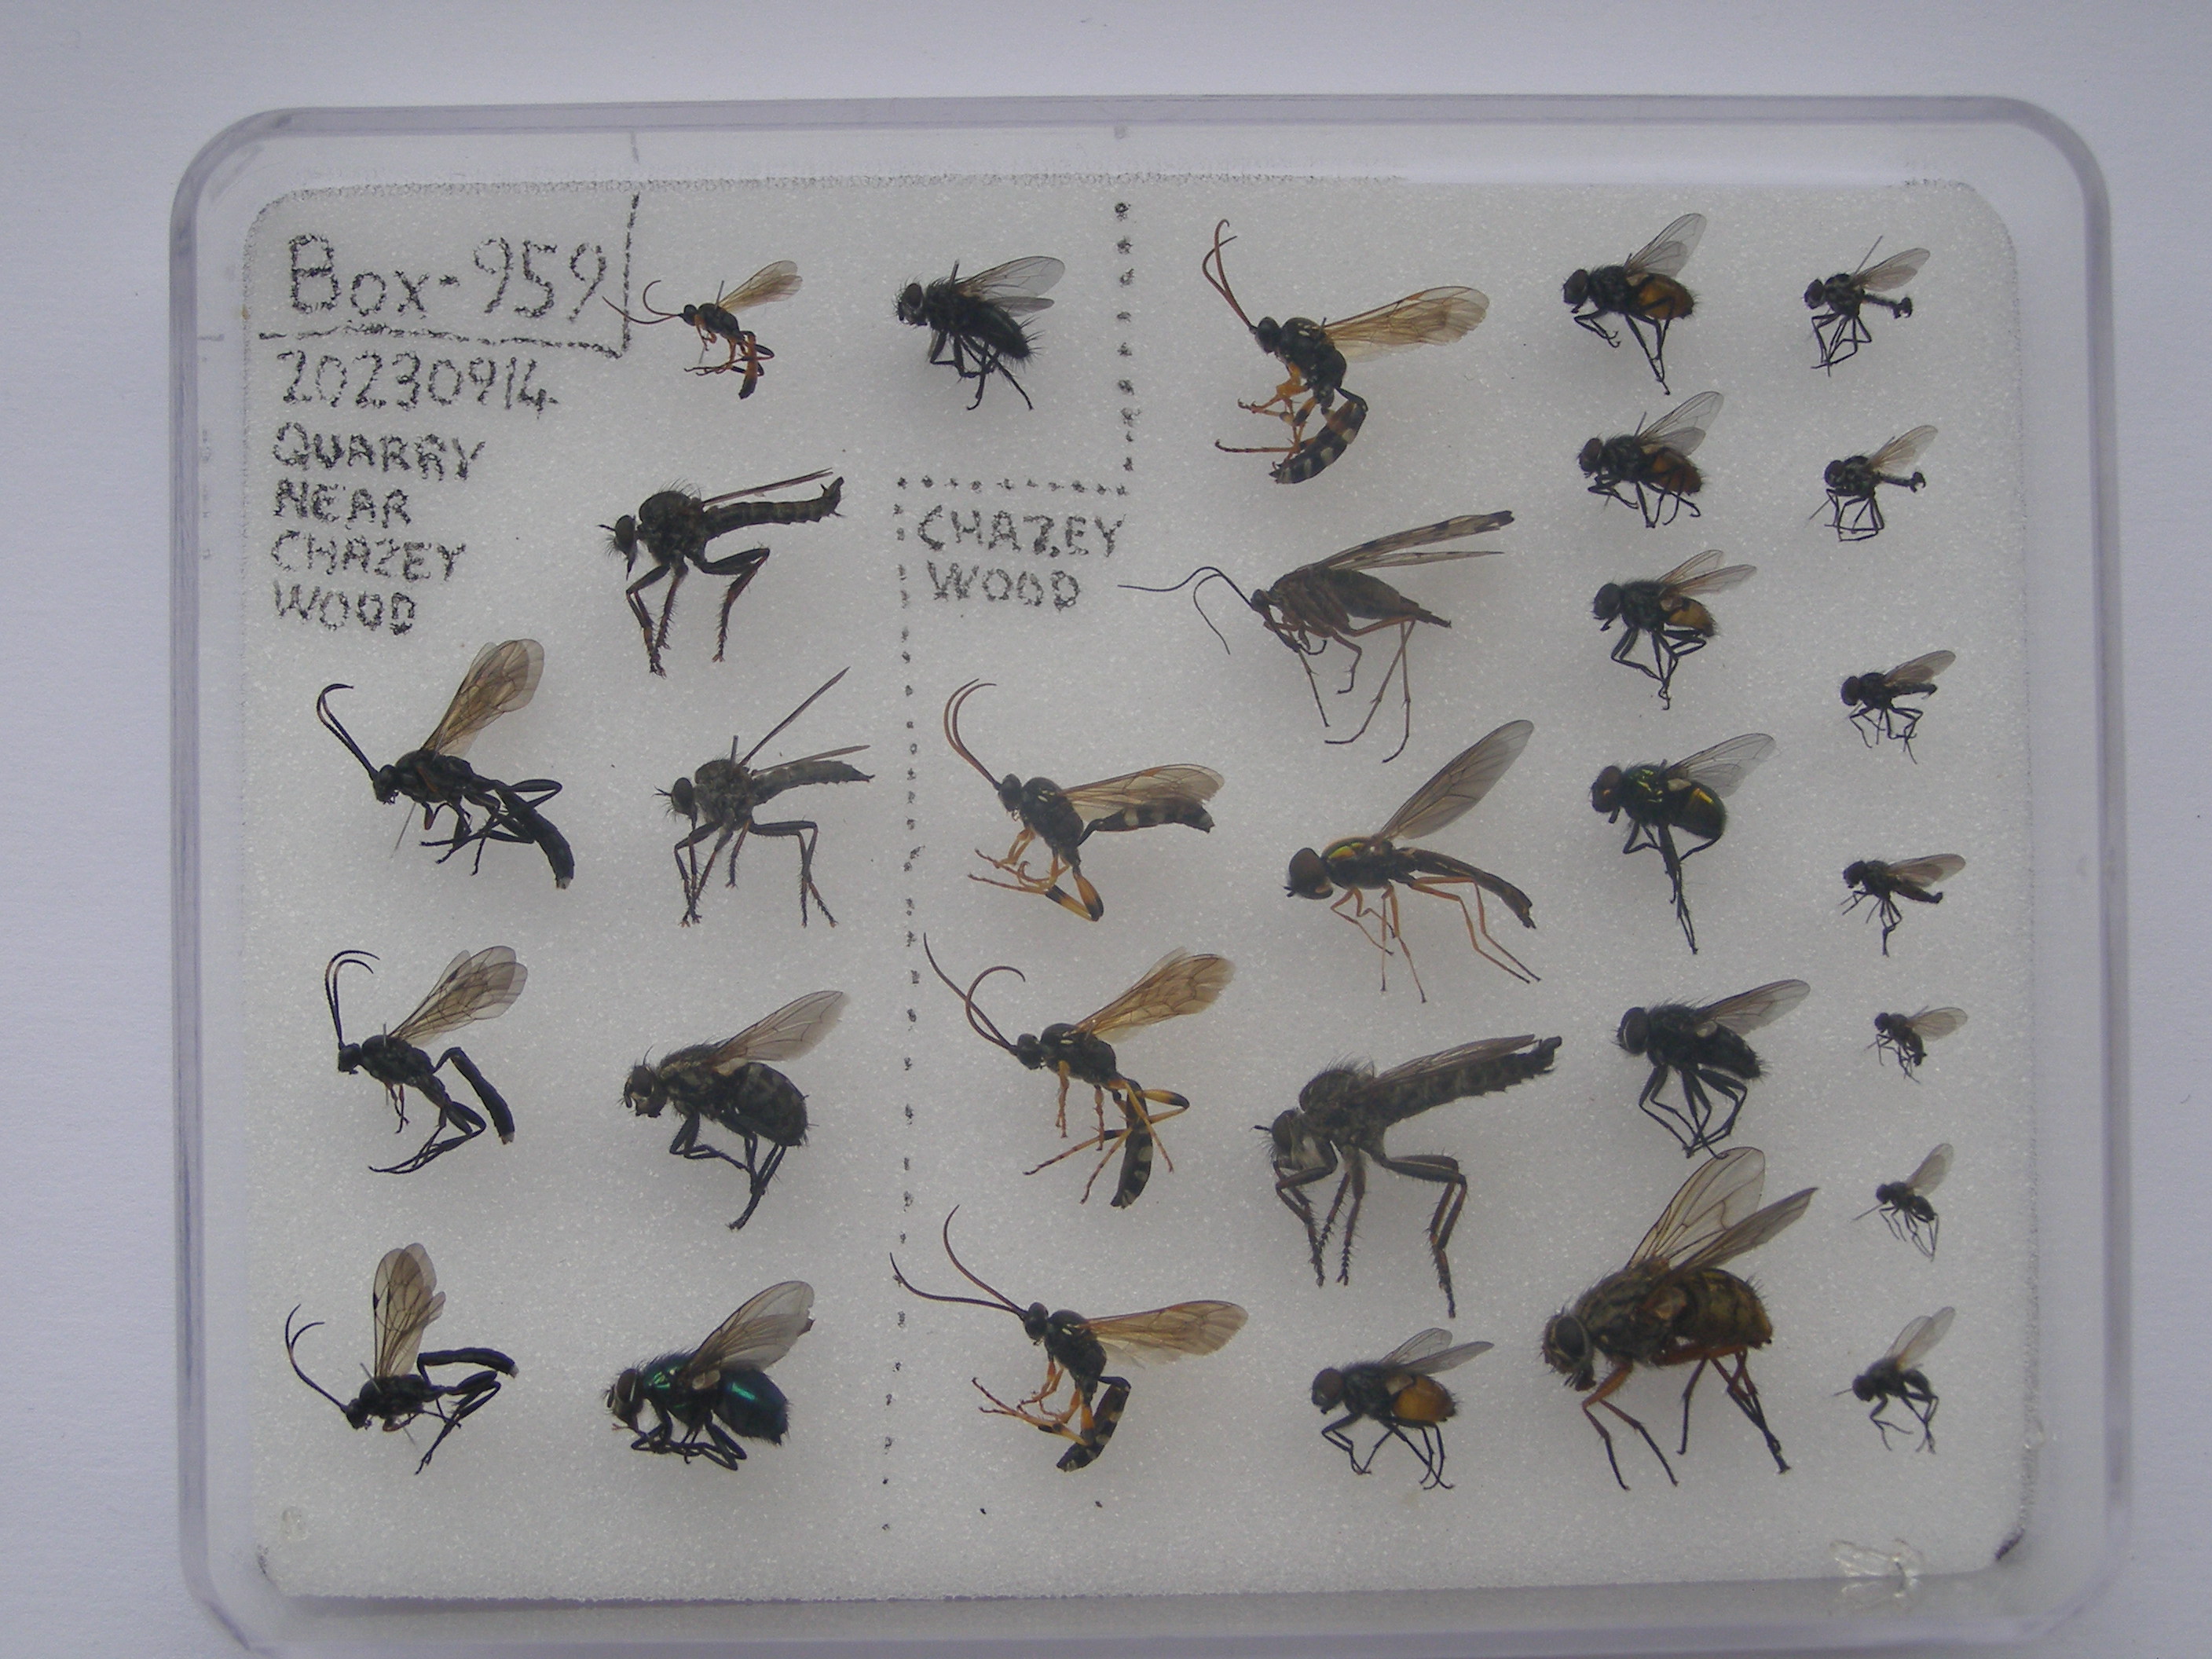 Box-959
20230914
QUARRY
NEAR
CHAZEY
WOOD
CHAZEY
WOOD